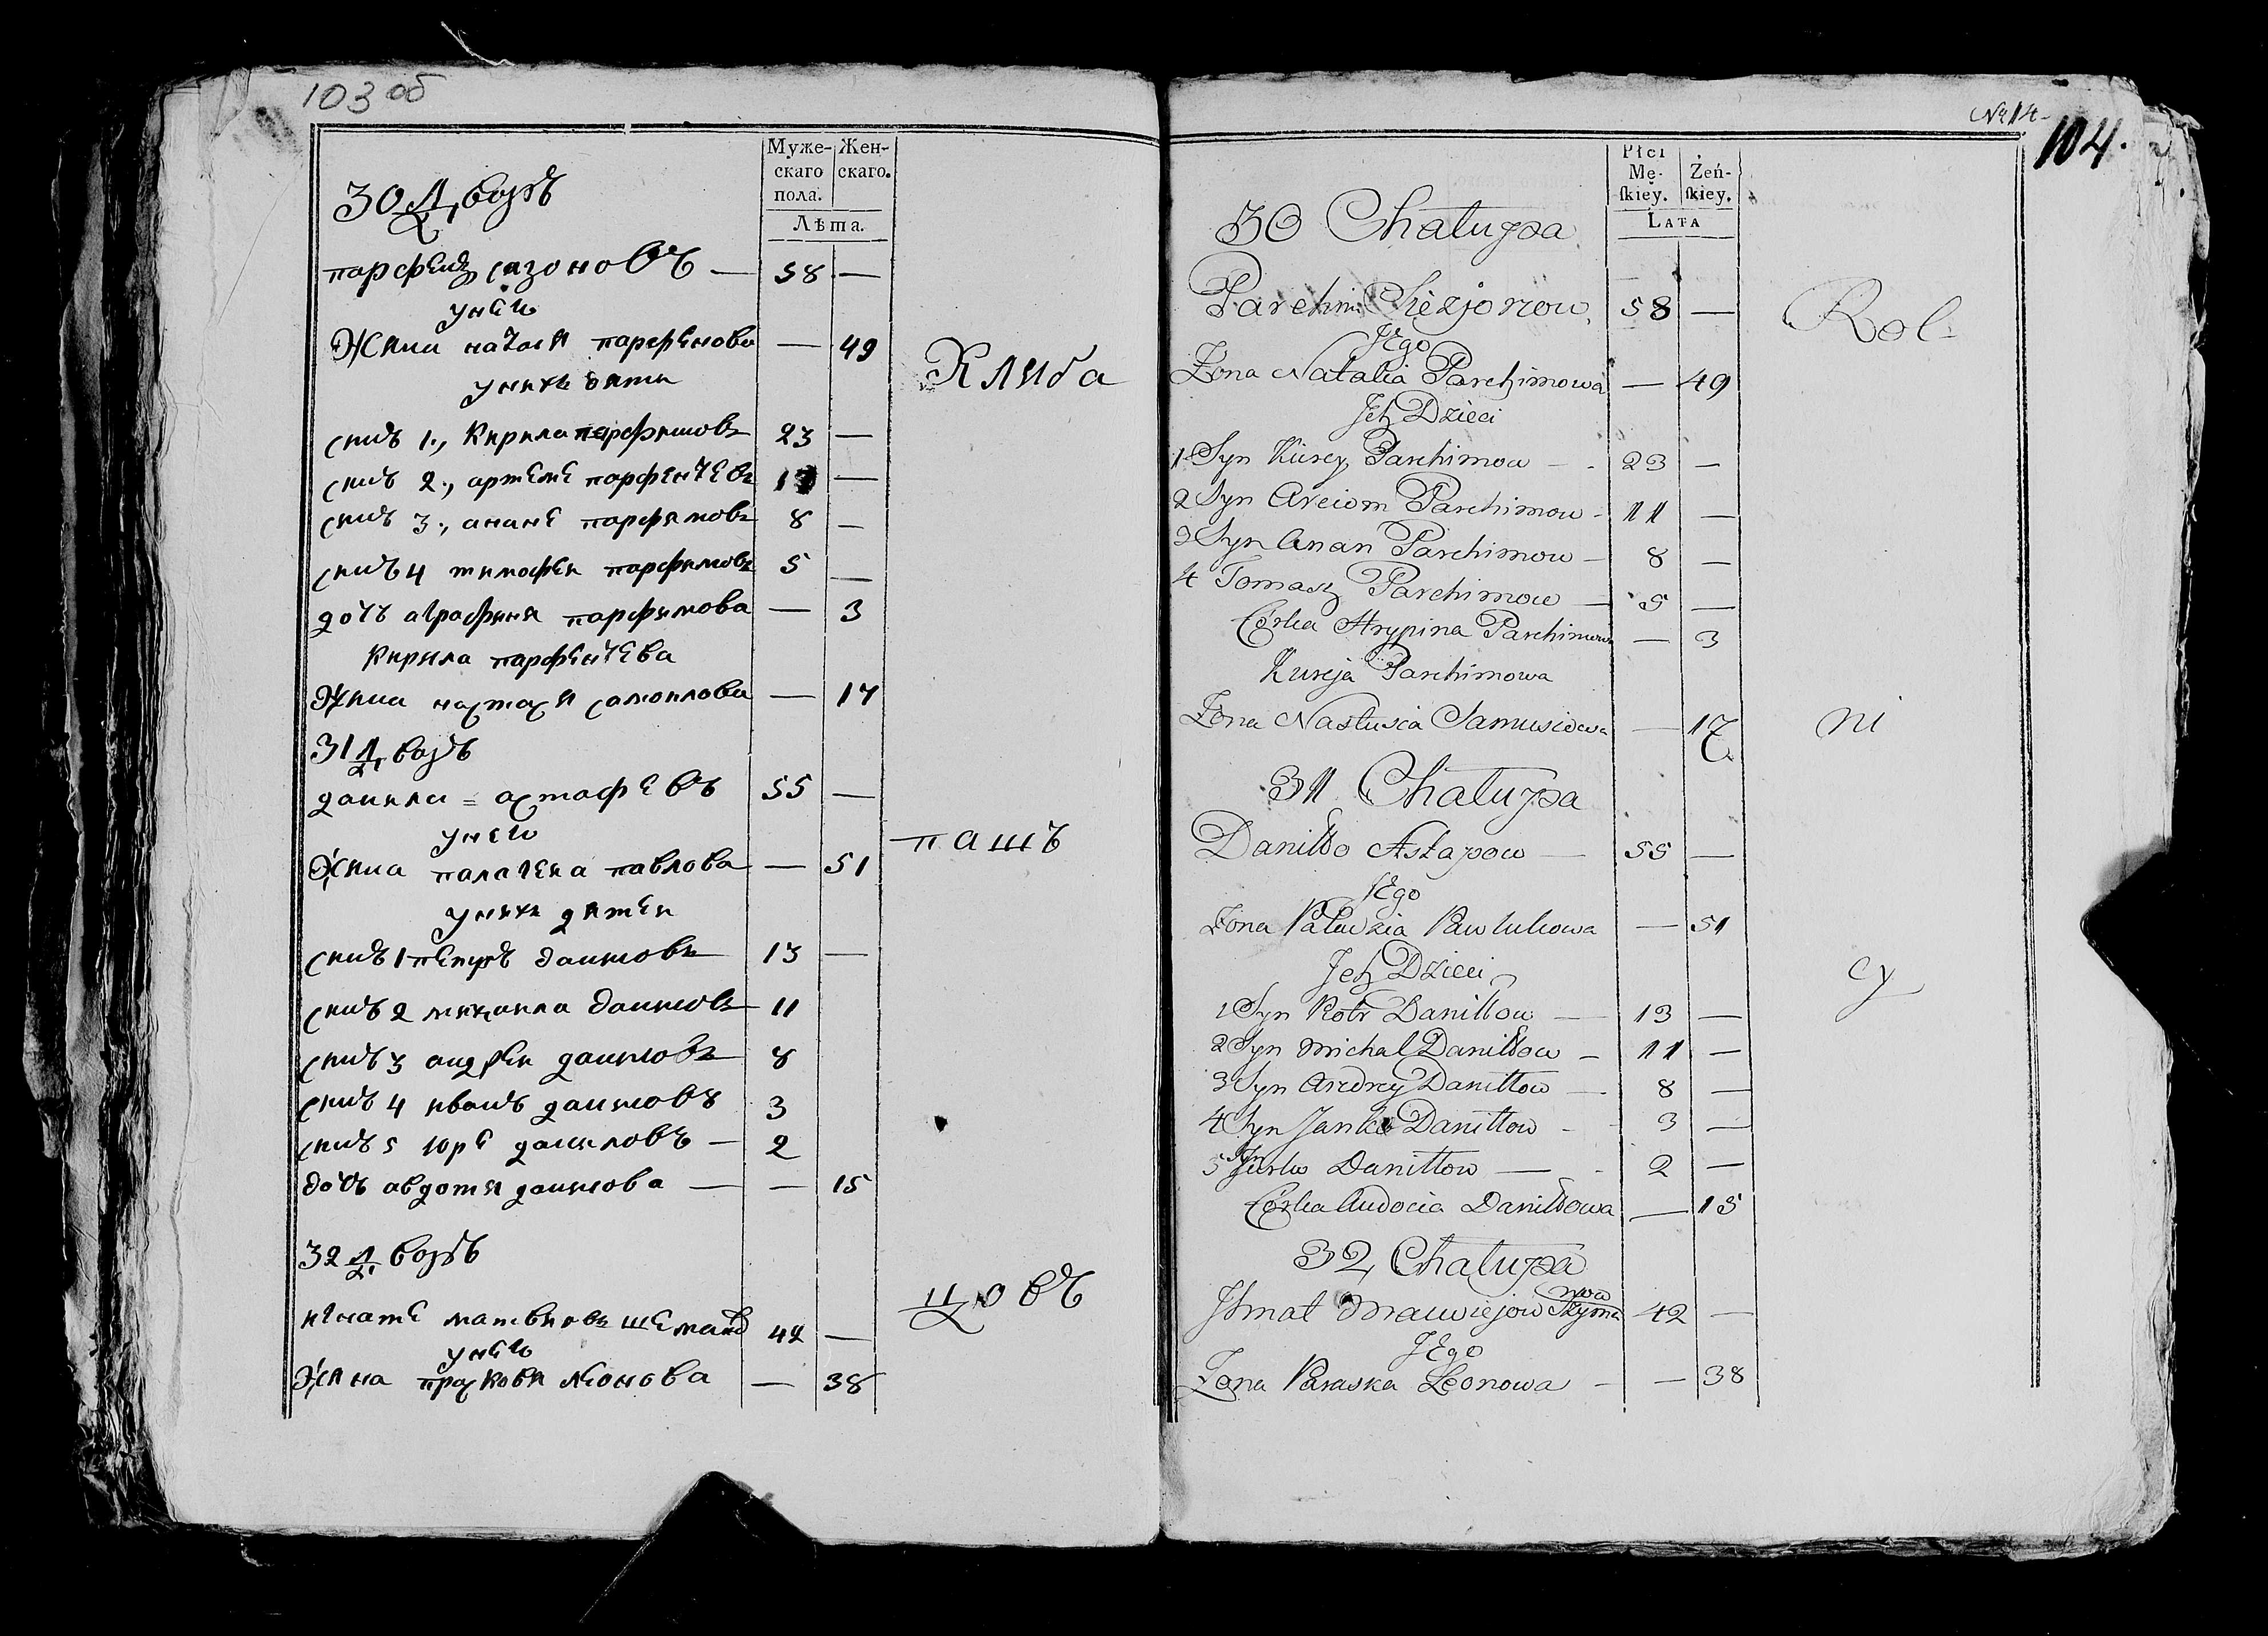 103 об
Муже-
скаго
пола.
Жен-
скаго.
Лѣта.
30 Дворъ
парфенъ сазоновъ — 58 —
унего
Жена наталя парфенова — 49
Хлиба
унихъ дети
сынъ 1., Кирила парфимовъ 23 —
сынъ 2., артеме парфентевъ —
сынъ 3., анане парфимовъ 8 —
сынъ 4 тимофеи парфимовъ 5 —
дочъ аграфиня парфимова — 3
Кирила парфентева
Жена настася самоилова — 17
31 Дворъ
данила = астафевъ 55 —
унего
пашъ
Жена палагеиа павлова — 51
унихъ дитеи
сынъ 1 петръ даниловъ 13 —
сынъ 2 михаила даниловъ 11
сынъ 3 андреи даниловъ 8
сынъ 4 иванъ даниловъ 3
сынъ 5 юре даниловъ — 2
дочъ авдотя данилова — — 15
32 Дворъ
цовъ
игнате матвеивъ 42 —
унего
Жена прасковя леонова — 38
№ 14
104.
Płci
Mę-
skiey.
Żeń-
skiey.
LATA
30 Chałupa
Parchim 58 —
Rol-
Jego
Żona Natalia Parchimowa — 49
Jch Dzieci
1 Syn Kirey Parchimow — 23 —
2 Syn Arciom Parchimow - 11 —
3 Syn Anan Parchimow — 8 —
4 Tomasz Parchimow — 5 —
Córka Hrypina Parchimowa — 3
Kireja Parchimowa
Żona Nastusia Samusiowa — 17
ni
31 Chałupa
Daniłło Astapow — 55 —
Jego
Żona Pałuzia Pawlukowa — 51
cy
Jch Dzieci
1 Syn Piotr Daniłłow — 13 —
2 Syn Michał Daniłłow — 11 —
3 Syn Andrey Daniłłow — 8 —
4 Syn Janko Daniłłow - 3 —
5 Syn Jurko Daniłłow — 2 —
Córka Audocia Daniłłowa — 15
32 Chałupa
Jhnat Mawiejow 42 —
Jego
Żona Paraska Leonowa — — 38